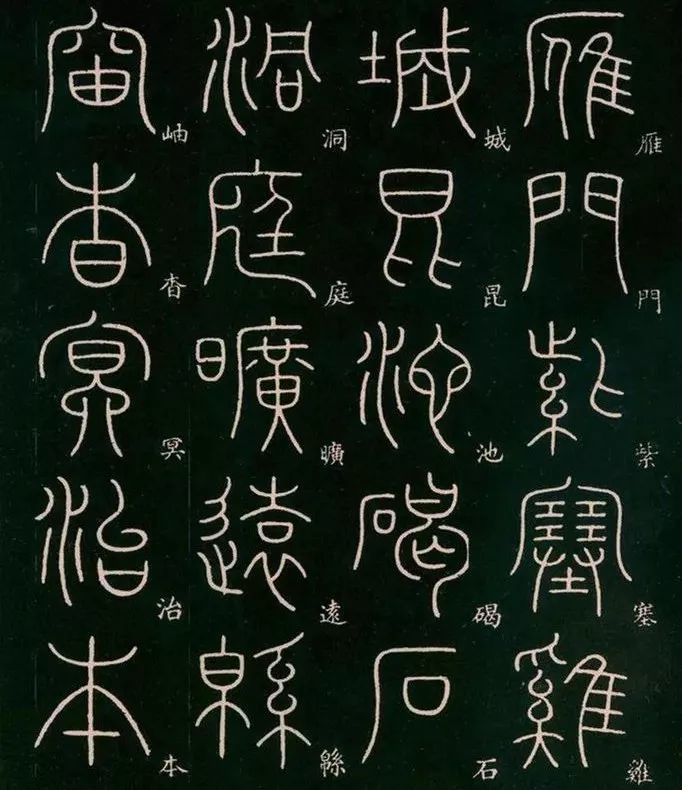 雁門紫塞雞
城昆池碣石
洞庭曠遠緜
岫杳冥治本